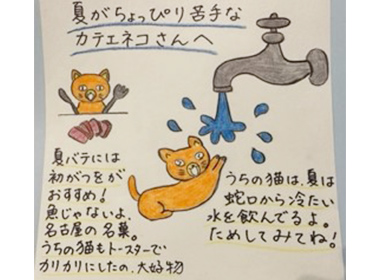 夏がちょっぴり苦手な
カテエネコさんへ
夏バテには
初がつをが
おすすめ!
魚じゃないよ、
名古屋の名菓。
うちの猫もトースターで
カリカリにしたの、大好物
うちの猫は、夏は
蛇口から冷たい
水を飲んでるよ。
ためしてみてね!